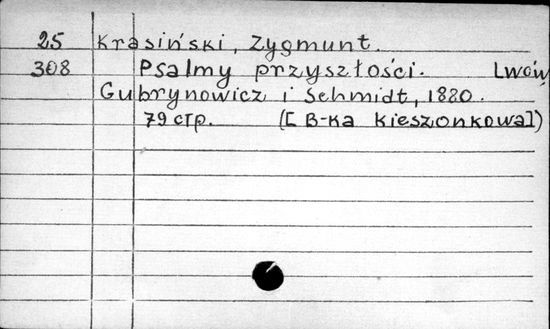 25 Krasiński, Zygmunt.
308 Psalmy przyszłości. Lwów,
Gubrynowicz i Schmidt, 1880.
79 стр. ([B-ka kieszonkowa])